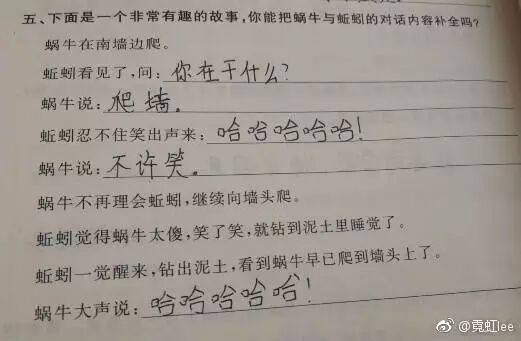 五、下面是一个非常有趣的故事,你能把蜗牛与蚯蚓的对话内容补全吗?
蜗牛在南墙边爬。
蚯蚓看见了,问:你在干什么?
蜗牛说:爬墙。
蚯蚓忍不住笑出声来:哈哈哈哈哈!
蜗牛说:不许笑。
蜗牛不再理会蚯蚓,继续向墙头爬。
蚯蚓觉得蜗牛太傻,笑了笑,就钻到泥土里睡觉了。
蚯蚓一觉醒来,钻出泥土,看到蜗牛早已爬到墙头上了。
蜗牛大声说:哈哈哈哈哈!
@霓虹lee